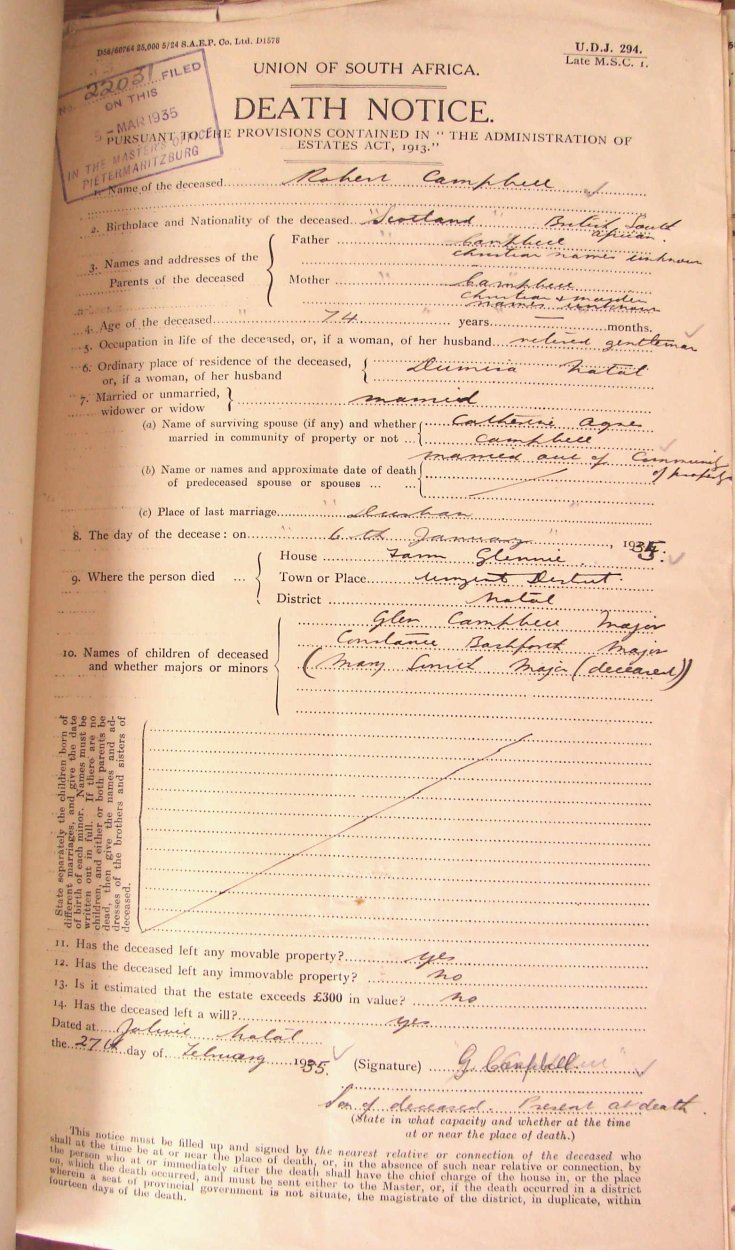 D56/60764 25,000 5/24 S.A.E.P. Co. Ltd. D1578
U.D.J. 294.
Late M.S.C. 1.
No. 22031 FILED
ON THIS
5 - MAR 1935
IN THE MASTER'S OFFICE
PIETERMARITZBURG
UNION OF SOUTH AFRICA.
DEATH NOTICE.
PURSUANT TO THE PROVISIONS CONTAINED IN "THE ADMINISTRATION OF
ESTATES ACT, 1913."
1. Name of the deceased Robert Campbell
2. Birthplace and Nationality of the deceased Scotland British South
African.
3. Names and addresses of the Parents of the deceased
Father Campbell
Christian names unknown
Mother Campbell
Christian & mayden
names unknown
4. Age of the deceased 74 years — months.
5. Occupation in life of the deceased, or, if a woman, of her husband retired gentleman
6. Ordinary place of residence of the deceased, Dumisa Natal
or, if a woman, of her husband
7. Married or unmarried, married
widower or widow
(a) Name of surviving spouse (if any) and whether Catherine Agnes
married in community of property or not Campbell
married out of Community
of property
(b) Name or names and approximate date of death
of predeceased spouse or spouses
(c) Place of last marriage Durban
8. The day of the decease: on 6th January, 1935.
9. Where the person died
House Farm Glennie
Town or Place District
District Natal
10. Names of children of deceased
and whether majors or minors
Glen Campbell Major
Constance Bashforth Major
(Mary Smith Major (deceased))
State separately the children born of
different marriages, and give the date
of birth of each minor. Names must be
written out in full. If there are no
children, and either or both parents be
dead, then give the names and ad-
dresses of the brothers and sisters of
deceased.
11. Has the deceased left any movable property? yes
12. Has the deceased left any immovable property? no
13. Is it estimated that the estate exceeds £300 in value? no
14. Has the deceased left a will? yes
Dated at Natal
the 27th day of February 1935.
(Signature) G. Campbell
Son of deceased. Present at death.
(State in what capacity and whether at the time
at or near the place of death.)
This notice must be filled up and signed by the nearest relative or connection of the deceased who
shall at the time be at or near the place of death, or, in the absence of such near relative or connection, by
the person who at or immediately after the death shall have the chief charge of the house in, or the place
on, which the death occurred, and must be sent either to the Master, or, if the death occurred in a district
wherein a seat of provincial government is not situate, the magistrate of the district, in duplicate, within
fourteen days of the death.